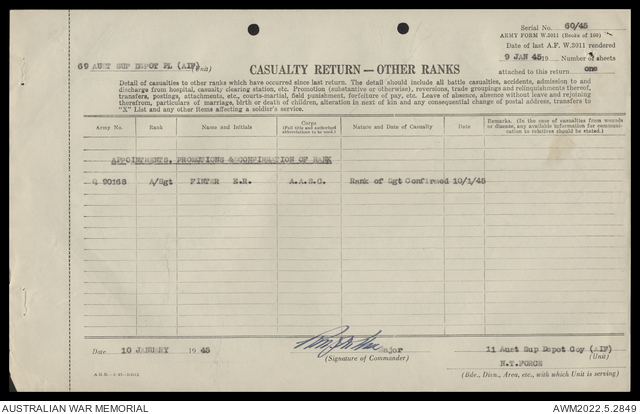 Serial No. 60/45
ARMY FORM W.3011 (Books of 100)
Date of last A.F. W.3011 rendered
69 AUST SUP DEPOT PL (AIF) (Unit)
9 JAN 45 19 Number of sheets
CASUALTY RETURN — OTHER RANKS
attached to this return one
Detail of casualties to other ranks which have occurred since last return. The detail should include all battle casualties, accidents, admission to and
discharge from hospital, casualty clearing station, etc. Promotion (substantive or otherwise), reversions, trade groupings and relinquishments thereof,
transfers, postings, attachments, etc., courts-martial, field punishment, forfeiture of pay, etc. Leave of absence, absence without leave and rejoining
therefrom, particulars of marriage, birth or death of children, alteration in next of kin and any consequential change of postal address, transfers to
"X" List and any other items affecting a soldier's service.
Army No. Rank Name and Initials Corps (Full title and authorized abbreviations to be used.) Nature and Date of Casualty Date Remarks. (In the case of casualties from wounds or disease, any available information for communication to relatives should be stated.)
APPOINTMENTS, PROMOTIONS & CONFIRMATION OF RANK
Q 90168 A/Sgt FINTER E.R. A.A.S.C. Rank of Sgt Confirmed 10/1/45
Date 10 JANUARY 1945
Major
(Signature of Commander)
11 Aust Sup Depot Coy (AIF)
(Unit)
N.T.FORCE
(Bde., Divn., Area, etc., with which Unit is serving)
AUSTRALIAN WAR MEMORIAL
AWM2022.5.2849